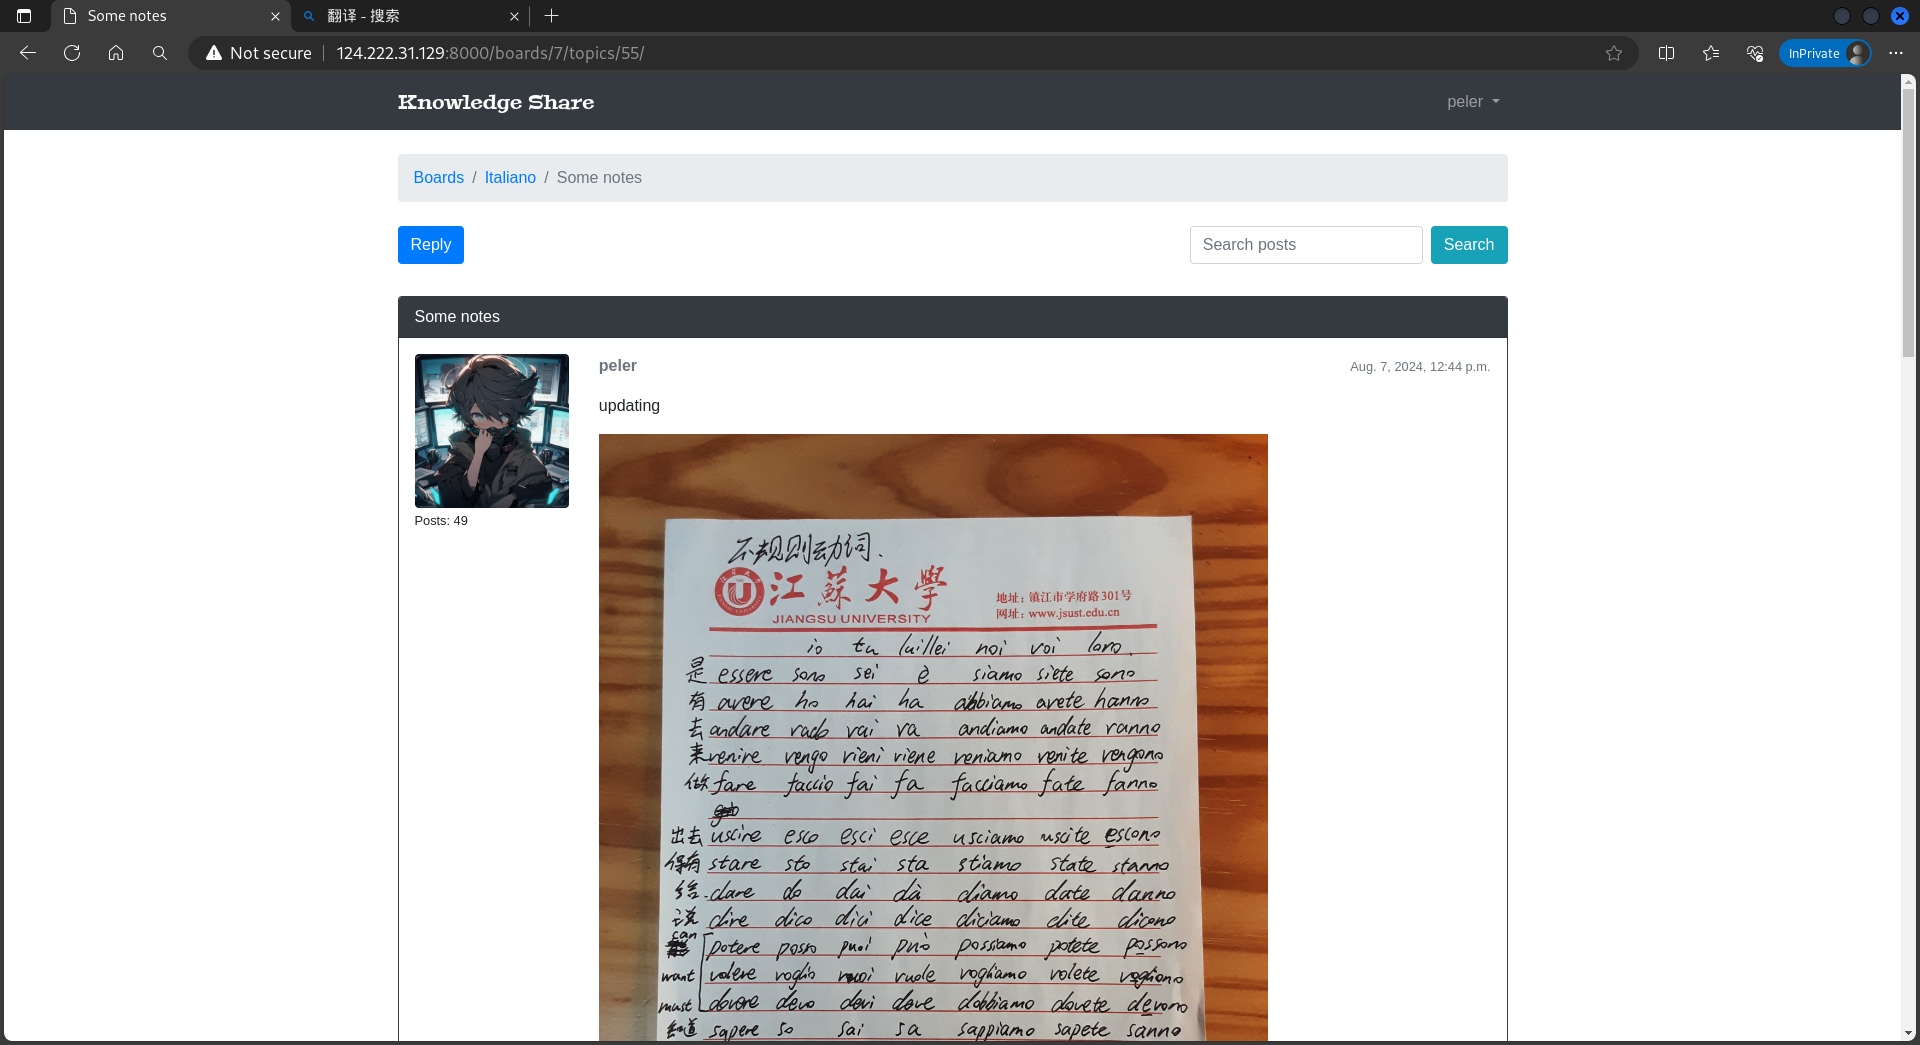 Some notes
翻译 - 搜索
Not secure
124.222.31.129:8000/boards/7/topics/55/
InPrivate
Knowledge Share
peler
Boards / Italiano / Some notes
Reply
Search posts
Search
Some notes
peler
Aug. 7, 2024, 12:44 p.m.
updating
Posts: 49
不规则动词、
江蘇大學
JIANGSU UNIVERSITY
地址：镇江市学府路301号
网址：www.jsust.edu.cn
io tu lui/lei noi voi loro
是 essere sono sei è siamo siete sono
有 avere ho hai ha abbiamo avete hanno
去 andare vado vai va andiamo andate vanno
来 venire vengo vieni viene veniamo venite vengono
做 fare faccio fai fa facciamo fate fanno
出去 uscire esco esci esce usciamo uscite escono
stare sto stai sta stiamo state stanno
给 dare do dai dà diamo date danno
说 dire dico dici dice diciamo dite dicono
can potere posso puoi può possiamo potete possono
want volere voglio vuoi vuole vogliamo volete vogliono
must dovere devo devi deve dobbiamo dovete devono
知道 sapere so sai sa sappiamo sapete sanno